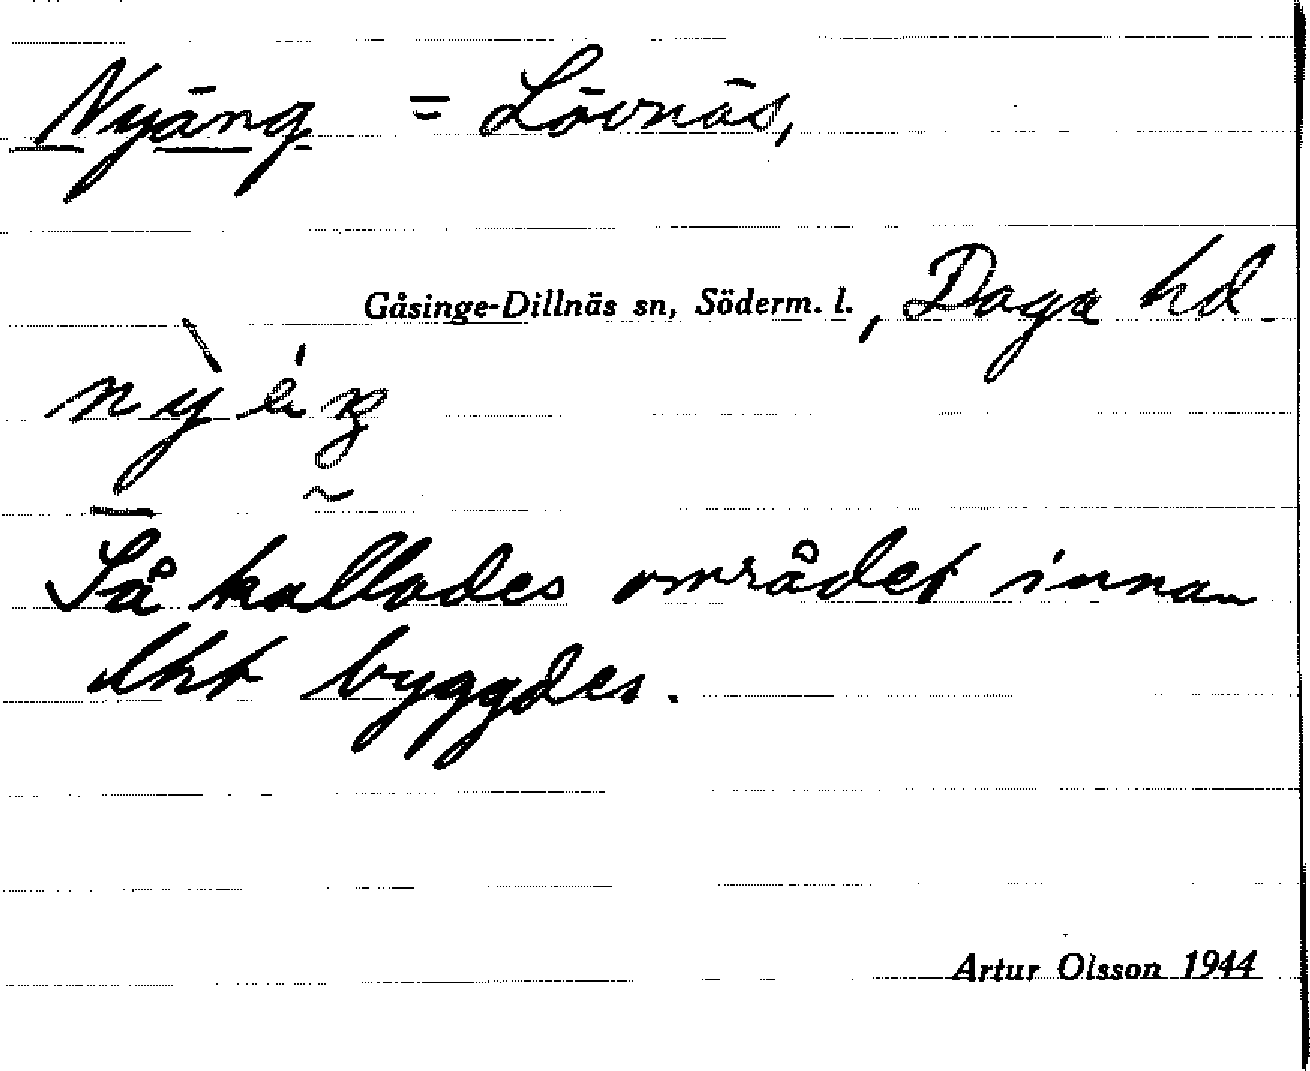 Nyäng = Lövnäs,
Gåsinge-Dillnäs sn, Söderm. l., Daga hd.
Så kallades området innan
lht byggdes.
Artur Olsson 1944